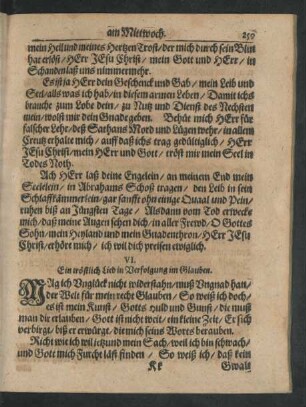 am Mittwoch. 259
mein Heil und meines Hertzen Trost / der mich durch sein Blut
hat erlöst / HErr JEsu Christ / mein Gott und HErr / in
Schanden laß uns nimmermehr.
Es ist ja HErr dein Geschenck und Gab / mein Leib und
Seel / alls was ich hab / in diesem armen Leben / Damit ichs
brauche zum Lobe dein / zu Nutz und Dienst des Nechsten
mein / wolst mir dein Gnade geben. Behüt mich HErr für
falscher Lehr / deß Sathans Mord und Lügen wehr / in allem
Creutz erhalte mich / auff daß ichs trag gedültiglich / HErr
JEsu Christ / mein HErr und Gott / tröst mir mein Seel in
Todes Noth.
Ach HErr laß deine Engelein / an meinem End mein
Seelelein / in Abrahams Schoß tragen / den Leib in sein
Schlaffkämmerlein / gar sanfft ohn einige Quaal und Pein /
ruhen biß an Jüngsten Tage / Alsdann vom Tod erwecke
mich / daß meine Augen sehen dich / in aller Frewd / O Gottes
Sohn / mein Heyland und mein Gnadenthron / HErr JEsu
Christ / erhört mich / ich wil dich preisen ewiglich.
VI.
Ein tröstlich Lied in Verfolgung im Glauben.
MAg ich Unglück nicht widerstahn / muß Ungnad han /
der Welt für mein recht Glauben / So weiß ich doch /
es ist mein Kunst / Gotts Huld und Gunst / die muß
man die erlauben / Gott ist nicht weit / ein kleine Zeit / Er sich
verbirgt / biß er erwürgt / die mich seins Worts berauben.
Richt wie ich wil jetzund mein Sach / weil ich bin schwach /
und Gott mich Furcht läst finden / So weiß ich / daß kein
Kk Gwalt